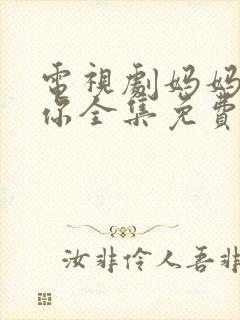 電視劇妈妈
你全集免費
汝非伶人吾非